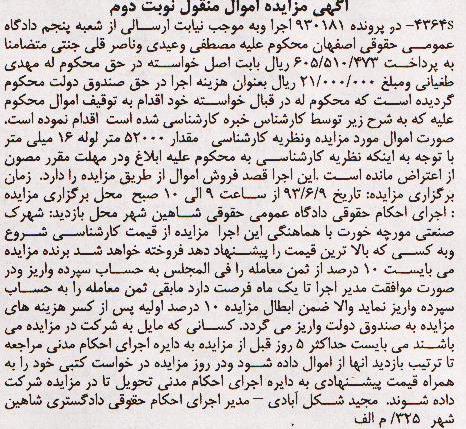 آگهی مزایده اموال منقول نوبت دوم
۴۳۶۴s- در پرونده ۹۳۰۱۸۱ اجرا وبه موجب نیابت ارسالی از شعبه پنجم دادگاه
عمومی حقوقی اصفهان محکوم علیه مصطفی وعیدی وناصر قلی جنتی متضامنا
به پرداخت ۶۰۵/۵۱۰/۴۷۳ ریال بابت اصل خواسته در حق محکوم له مهدی
طغیانی ومبلغ ۲۱/۰۰۰/۰۰۰ ریال بعنوان هزینه اجرا در حق صندوق دولت محکوم
گردیده است که محکوم له در قبال خواسته خود اقدام به توقیف اموال محکوم
علیه که به شرح زیر توسط کارشناس خبره کارشناسی شده است اقدام نموده است.
صورت اموال مورد مزایده ونظریه کارشناسی مقدار ۵۲۰۰۰ متر لوله ۱۶ میلی متر
با توجه به اینکه نظریه کارشناسی به محکوم علیه ابلاغ ودر مهلت مقرر مصون
از اعتراض مانده است .این اجرا قصد فروش اموال از طریق مزایده را دارد. زمان
برگزاری مزایده: تاریخ ۹۳/۶/۹ از ساعت ۹ الی ۱۰ صبح محل برگزاری مزایده
: اجرای احکام حقوقی دادگاه عمومی حقوقی شاهین شهر محل بازدید: شهرک
صنعتی مورچه خورت با هماهنگی این اجرا مزایده از قیمت کارشناسی شروع
وبه کسی که بالا ترین قیمت را پیشنهاد دهد فروخته خواهد شد برنده مزایده
می بایست ۱۰ درصد از ثمن معامله را فی المجلس به حساب سپرده واریز ودر
صورت موافقت مدیر اجرا تا یک ماه فرصت دارد مابقی ثمن معامله را به حساب
سپرده واریز نماید والا ضمن ابطال مزایده ۱۰ درصد اولیه پس از کسر هزینه های
مزایده به صندوق دولت واریز می گردد. کسانی که مایل به شرکت در مزایده می
باشند می بایست حداکثر ۵ روز قبل از مزایده به دایره اجرای احکام مدنی مراجعه
تا ترتیب بازدید انها از اموال داده شود ودر روز مزایده در خواست کتبی خود را به
همراه قیمت پیشنهادی به دایره اجرای احکام مدنی تحویل تا در مزایده شرکت
داده شوند. مجید شکل آبادی – مدیر اجرای احکام حقوقی دادگستری شاهین
شهر ۳۲۵/ م الف